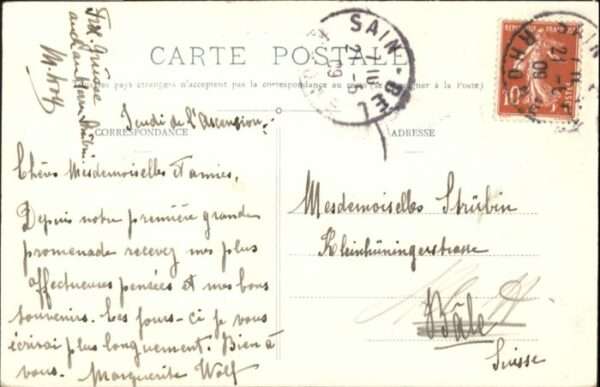 CARTE POSTALE
pays étrangers n'acceptent pas la correspondance au à la Poste)
CORRESPONDANCE
ADRESSE
SAIN-BEL
21-5
09
RHONE
10
Jeudi de l'Ascension.
Chères Mesdemoiselles et amies,
Depuis notre première grande
promenade recevez mes plus
affectueuses pensées et mes bons
souvenirs. Ces jours-ci je vous
écrirai plus longuement. Bien à
vous. Marguerite Wolf
Mesdemoiselles Strübin
Kleinhüningerstrasse
Bâle
Suisse
M. Wolf